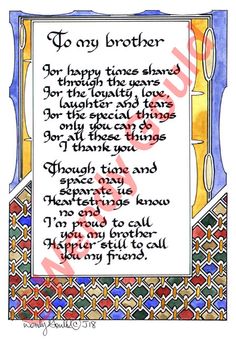 To my brother
For happy times shared
through the years
For the loyalty, love,
laughter and tears
For the special things
only you can do
For all these things
I thank you.
Though time and
space may
separate us
Heartstrings know
no end
I'm proud to call
you my brother
Happier still to call
you my friend.
Wendy Gould
Wendy Gould © J18